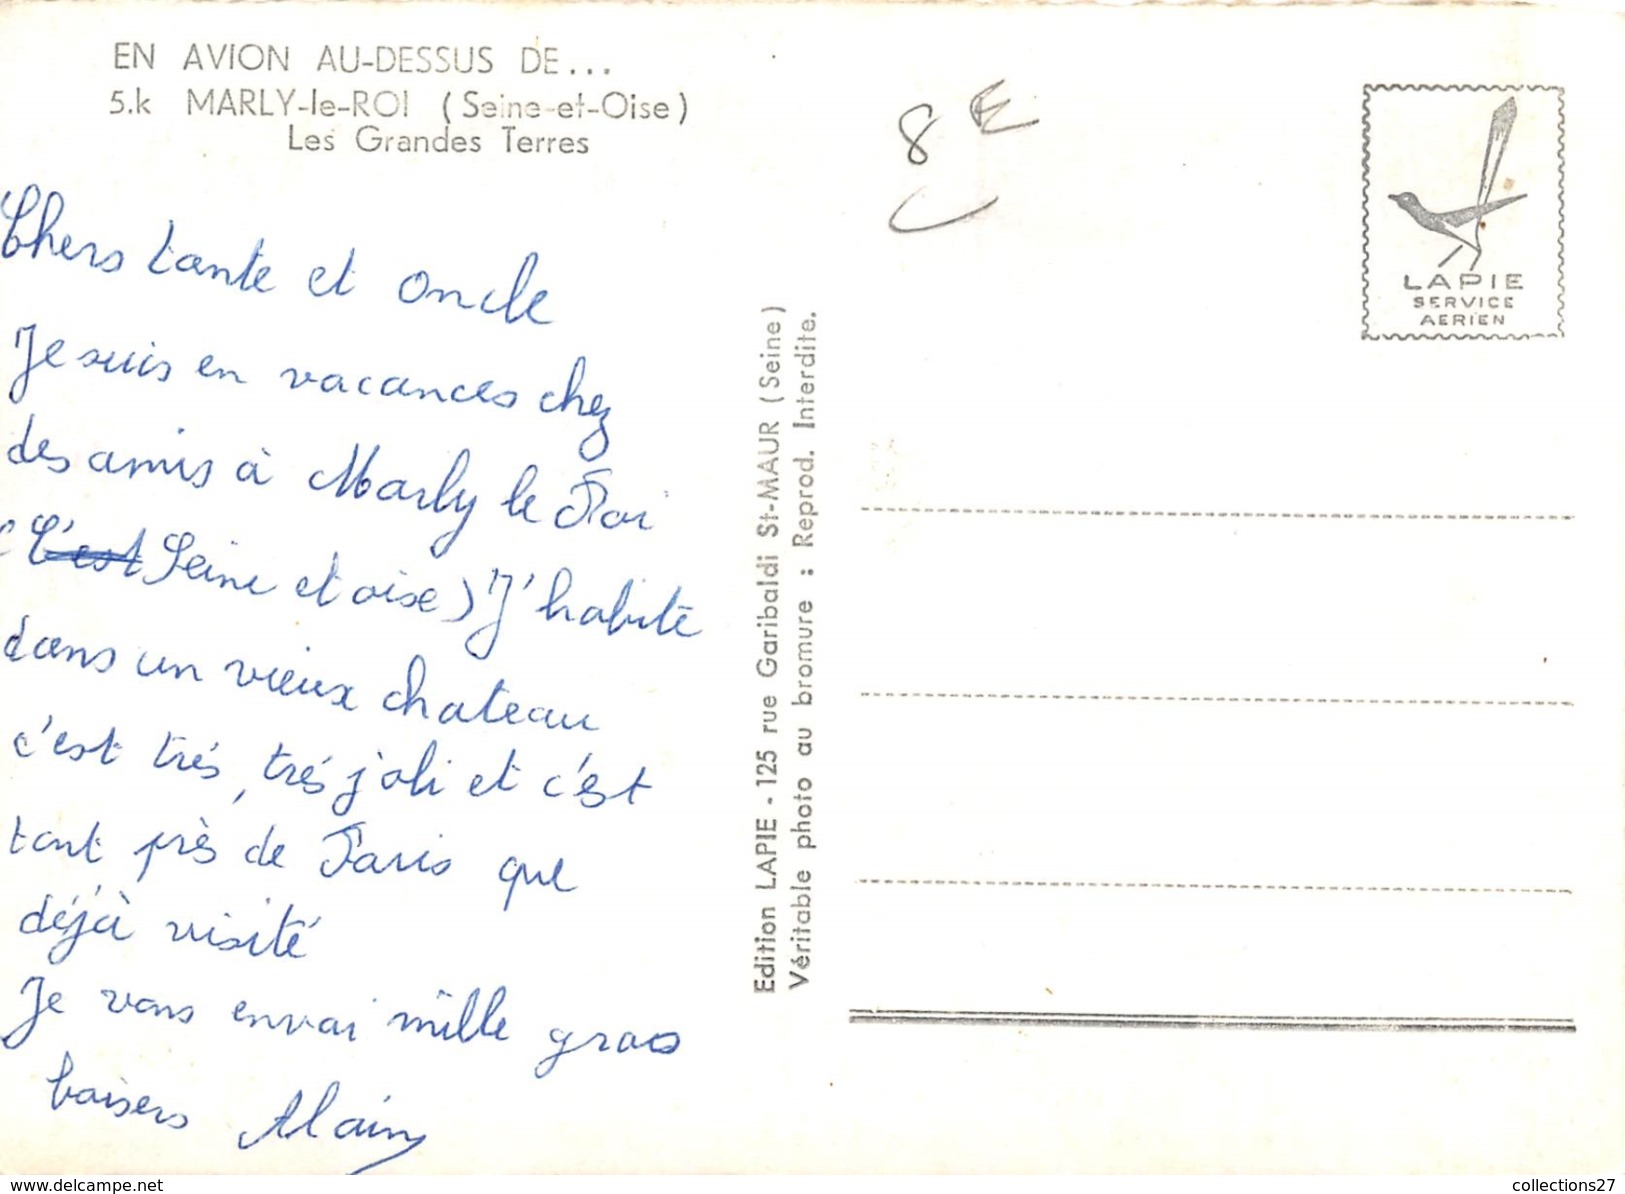 EN AVION AU-DESSUS DE...
5.k MARLY-le-ROI (Seine-et-Oise)
Les Grandes Terres
Chers tante et oncle
Je suis en vacances chez
des amis à Marly le Roi
(C'est Seine et oise) J'habite
dans un vieux chateau
c'est trés, trés joli et c'est
tout près de Paris que
déjà visité
Je vous envoi mille gros
baisers Alain
Edition LAPIE - 125 rue Garibaldi St-MAUR (Seine)
Véritable photo au bromure : Reprod. Interdite.
8 E
LAPIE
SERVICE
AERIEN
www.delcampe.net
collections27